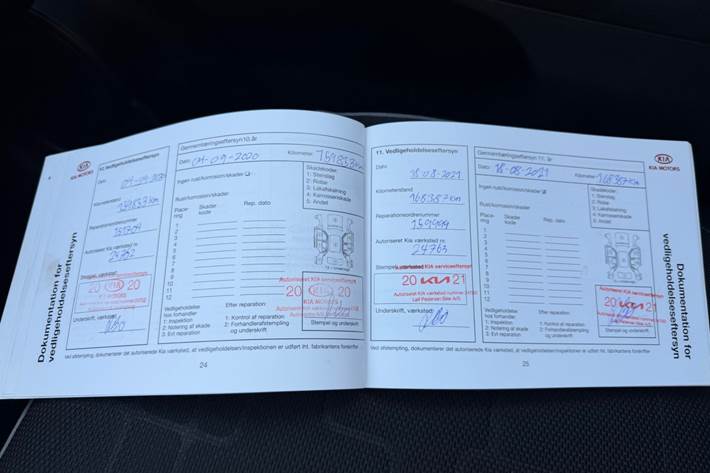 KIA
KIA MOTORS
Dokumentation for
vedligeholdelseseftersyn
Dato
Kilometerstand
Reparationsordrenummer
Autoriseret Kia værksted nr.
24762
20 KIA 20
KIA MOTORS
Underskrift, værksted
Gennemtæringseftersyn 10. år
Dato 01-09-2020
Kilometer
Ingen rust/korrosion/skader
Rust/korrosion/skader
Placering
Skadeskode
Rep. dato
1
2
3
4
5
6
7
8
9
10
11
12
Skadeskoder
1: Stenslag
2: Ridse
3: Lakafskalning
4: Karrosseriskade
5: Andet
Autoriseret KIA serviceeftersyn
20 KIA 20
KIA MOTORS
Vedligeholdelse
hos forhandler
1: Inspektion
2: Notering af skade
3: Evt reparation
Efter reparation:
1: Kontrol af reparation
2: Forhandlerafstempling
og underskrift
Stempel og underskrift
Ved afstempling, dokumenterer det autoriserede Kia værksted, at vedligeholdelsen/inspektionen er udført iht. fabrikantens forskrifter
24
11. Vedligeholdelseseftersyn
Dato
18.08-2021
Kilometerstand
168357km
Reparationsordrenummer
159999
Autoriseret Kia værksted nr.
24763
Autoriseret KIA serviceeftersyn
20 KIA 21
Leif Pedersen Biler A/S
Underskrift, værksted
Gennemtæringseftersyn 11. år
Dato 18-08-2021
Kilometer 168357km
Ingen rust/korrosion/skader
Rust/korrosion/skader
Placering
Skadeskode
Rep. dato
1
2
3
4
5
6
7
8
9
10
11
12
Skadeskoder
1: Stenslag
2: Ridse
3: Lakafskalning
4: Karrosseriskade
5: Andet
20 KIA 21
Vedligeholdelse
hos forhandler
1: Inspektion
2: Notering af skade
3: Evt reparation
Efter reparation:
1: Kontrol af reparation
2: Forhandlerafstempling
og underskrift
Stempel og underskrift
Ved afstempling, dokumenterer det autoriserede Kia værksted, at vedligeholdelsen/inspektionen er udført iht. fabrikantens forskrifter
25
KIA
KIA MOTORS
Dokumentation for
vedligeholdelseseftersyn